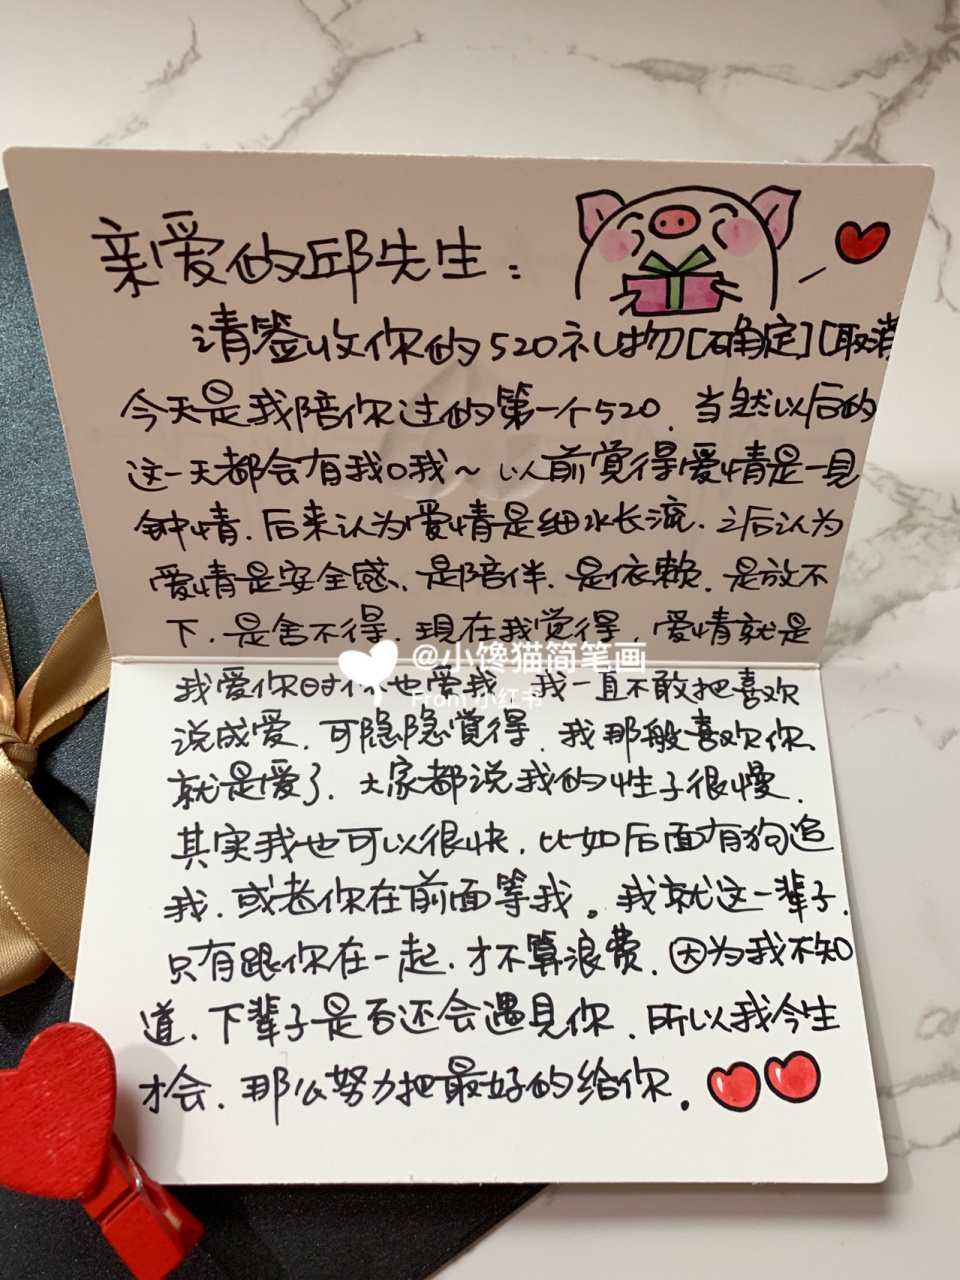 亲爱的邱先生：
请签收你的520礼物[确定][取消
今天是我陪你过的第一个520.当然以后的
这一天都会有我哦~以前觉得爱情是一见
钟情.后来认为爱情是细水长流.之后认为
爱情是安全感、是陪伴.是依赖.是放不
下.是舍不得.现在我觉得,爱情就是
@小馋猫简笔画
From 小红书
我爱你时你也爱我,我一直不敢把喜欢
说成爱.可隐隐觉得.我那般喜欢你
就是爱了.大家都说我的性子很慢.
其实我也可以很快.比如后面有狗追
我.或者你在前面等我。我就这一辈子.
只有跟你在一起.才不算浪费.因为我不知
道.下辈子是否还会遇见你.所以我今生
才会.那么努力把最好的给你.